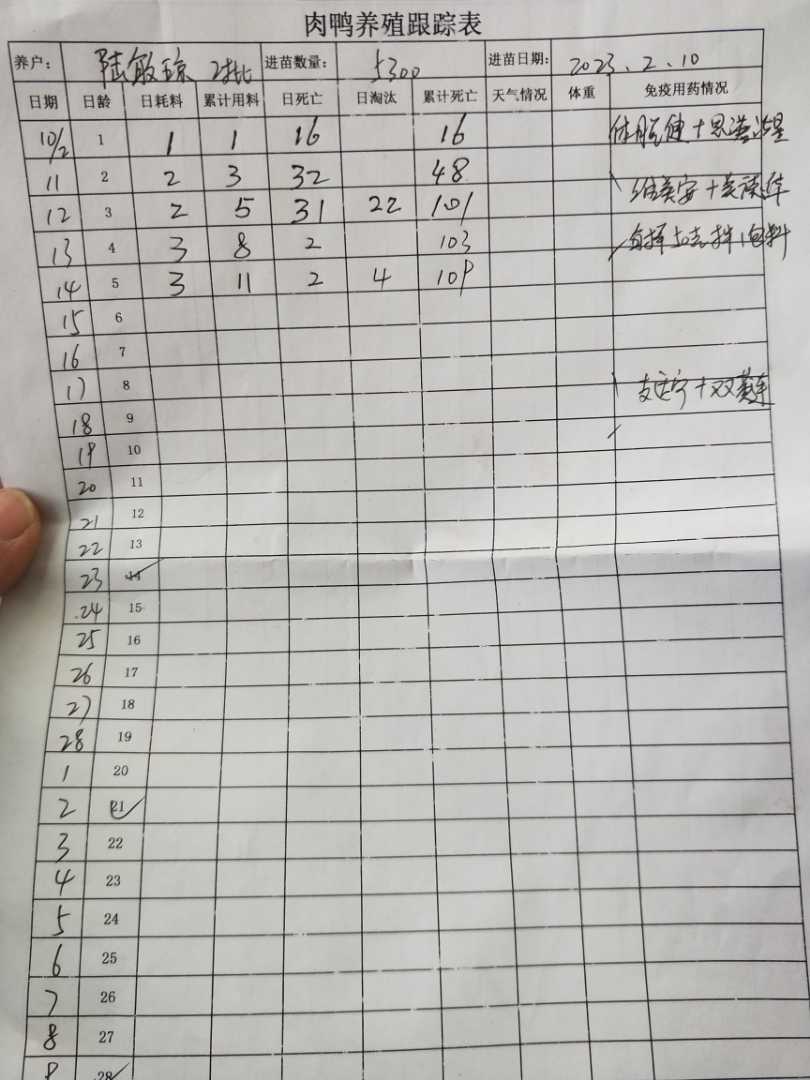 肉鸭养殖跟踪表
养户: 陆敏琼 2批 进苗数量: 5300 进苗日期: 2023.2.10
日期 日龄 日耗料 累计用料 日死亡 日淘汰 累计死亡 天气情况 体重 免疫用药情况
10/2 1 1 1 16 16
11 2 2 3 32 48
12 3 2 5 31 22 101
13 4 3 8 2 103
14 5 3 11 2 4 109
15 6
16 7
17 8
18 9
19 10
20 11
21 12
22 13
23 14
24 15
25 16
26 17
27 18
28 19
1 20
2 21
3 22
4 23
5 24
6 25
7 26
8 27
9 28